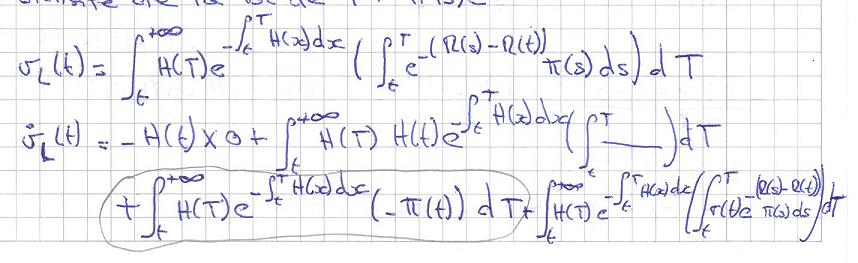 σ_L(t) = ∫_t^{+∞} H(T) e^{-∫_t^T H(x)dx} ( ∫_t^T e^{-(R(s)-R(t))} π(s) ds ) dT
σ̇_L(t) = - H(t) × 0 + ∫_t^{+∞} H(T) H(t) e^{-∫_t^T H(x)dx} ( ∫_t^T ___ ) dT
+ ∫_t^{+∞} H(T) e^{-∫_t^T H(x)dx} (-π(t)) dT + ∫_t^{+∞} H(T) e^{-∫_t^T H(x)dx} ( ∫_t^T r(t) e^{-(R(s)-R(t))} π(s) ds ) dT